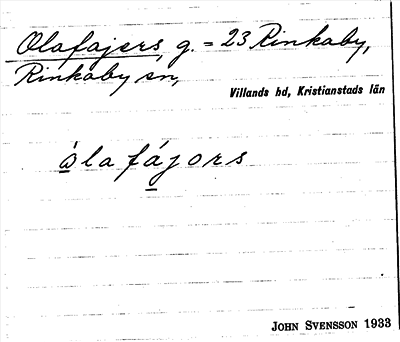 Olafajers, g. = 23 Rinkaby,
Rinkaby sn,
Villands hd, Kristianstads län
òlafájors
JOHN SVENSSON 1933